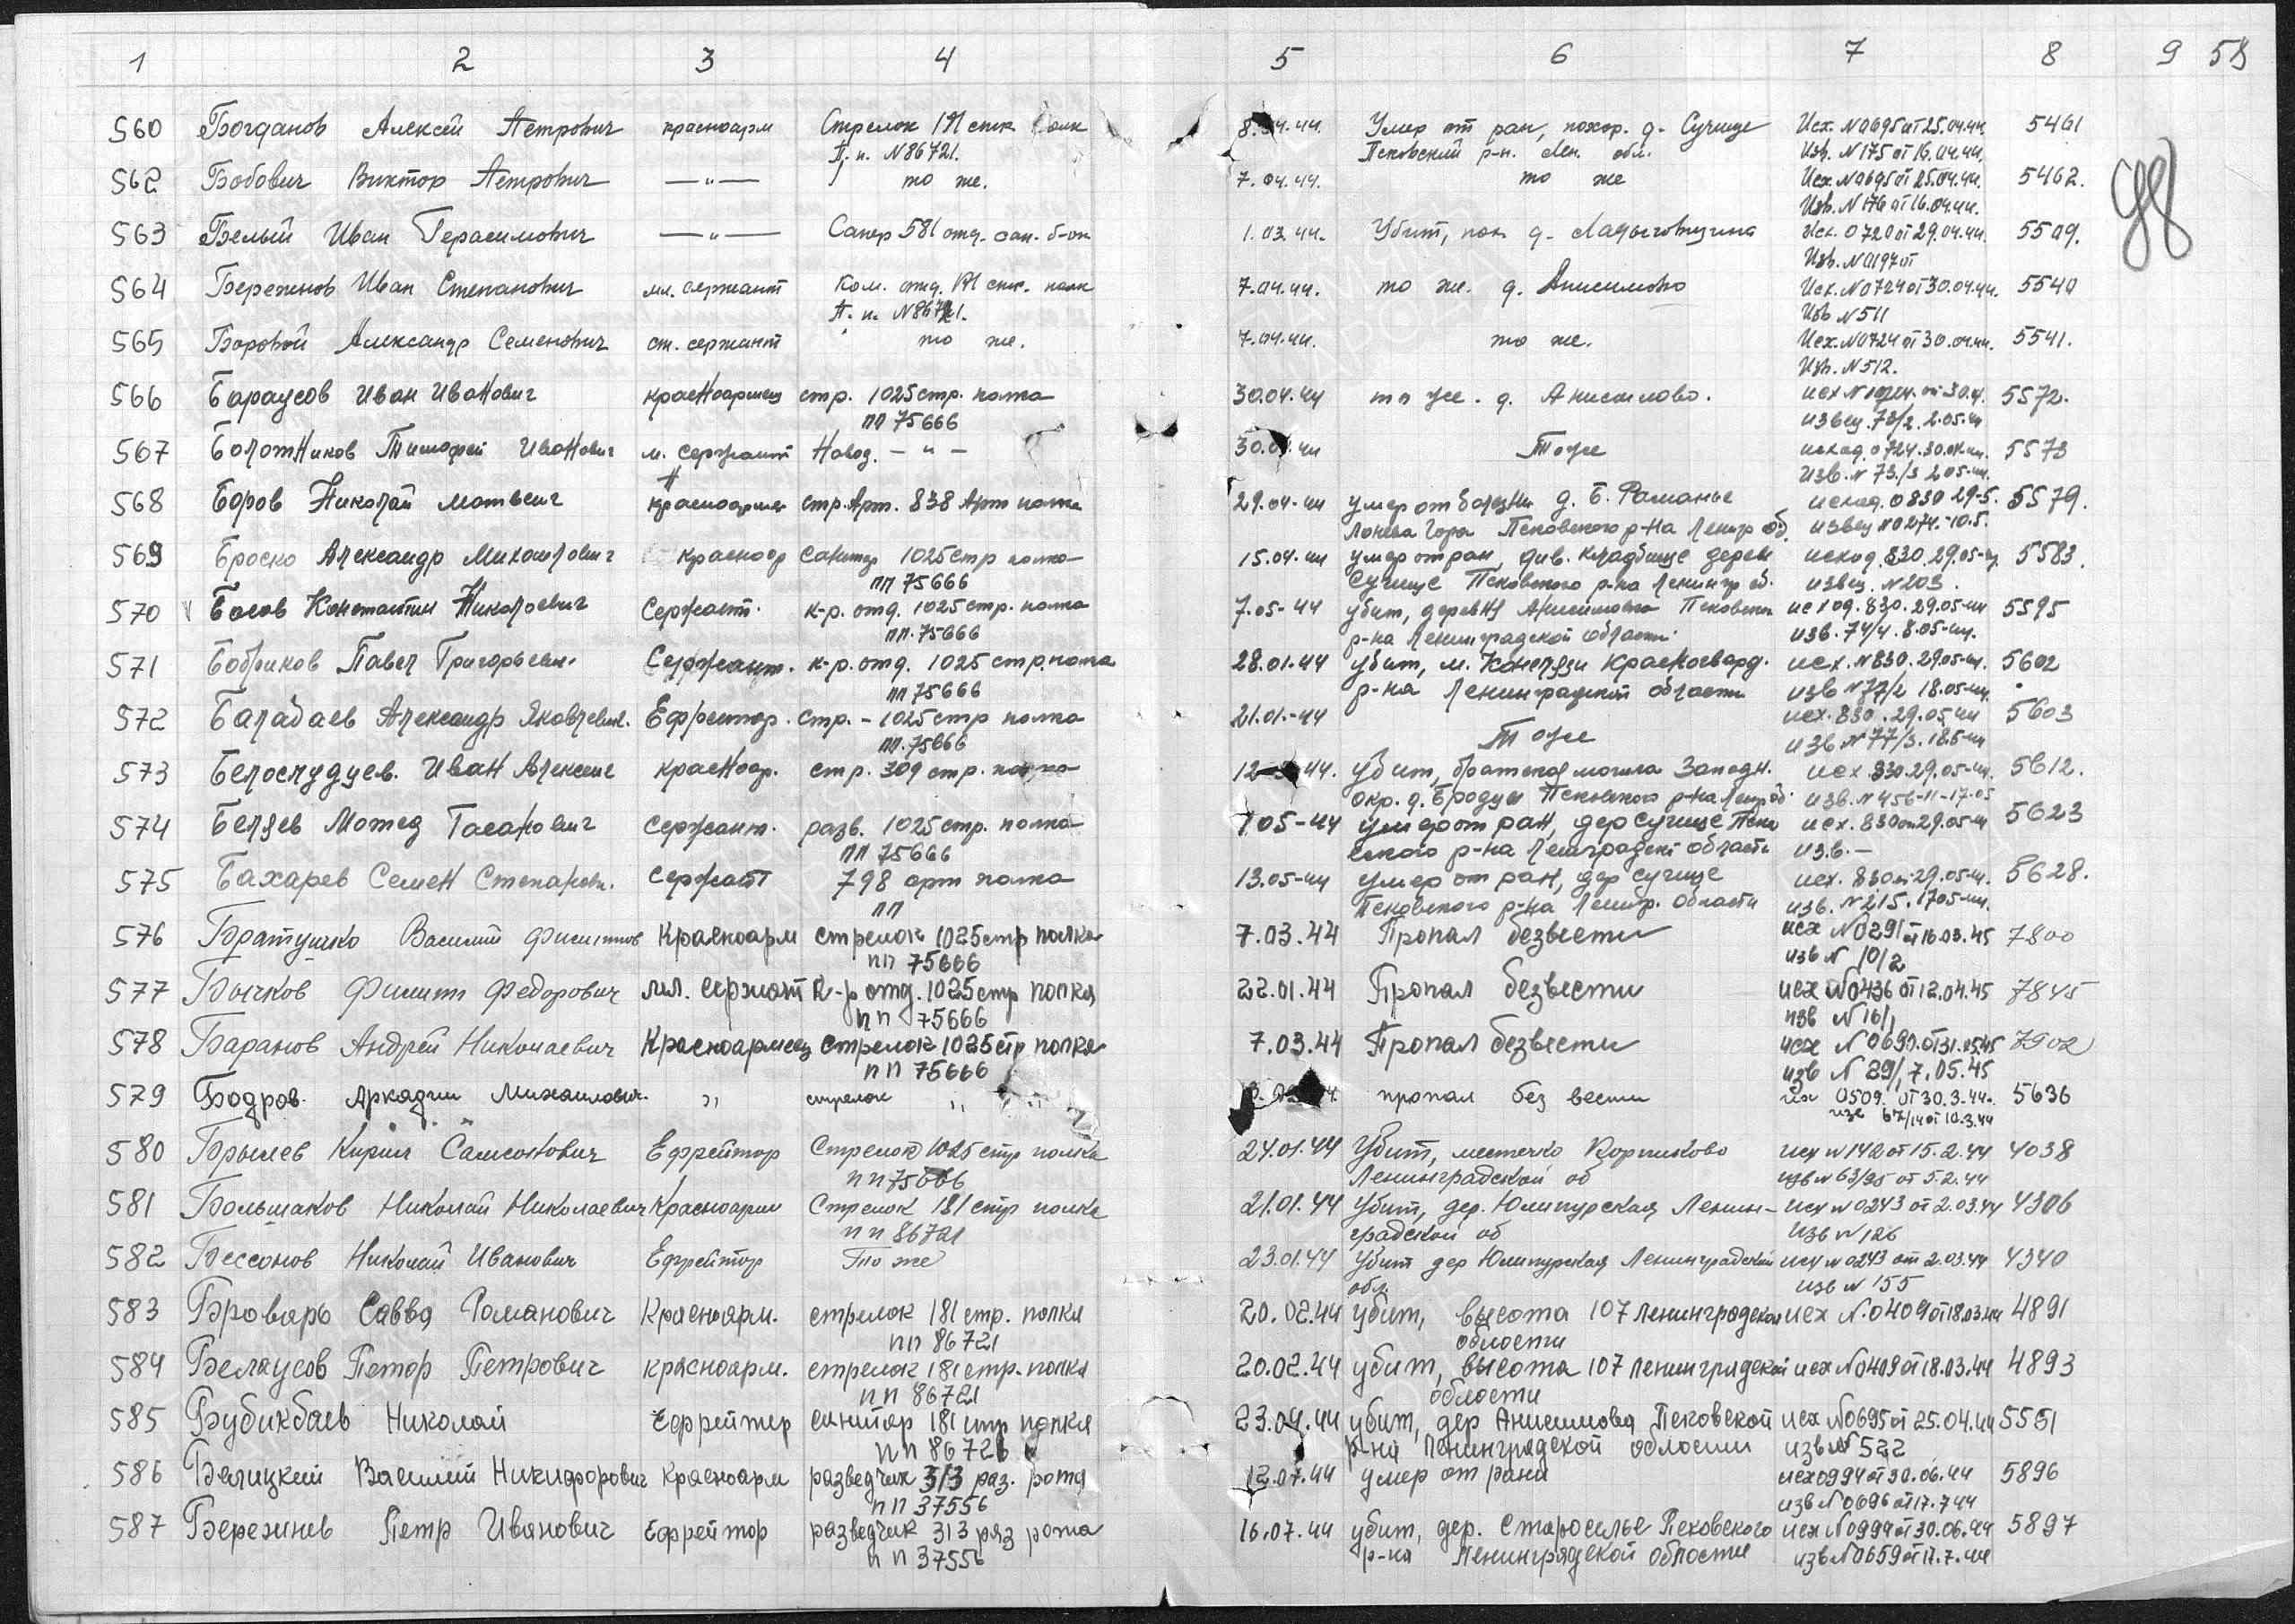 1 2 3 4 5 6 7 8 9 58
560 Богданов Алексей Петрович красноарм Стрелок 181 стр. полк 8.04.44. Умер от ран, похор. д. Сучище Исх. N0695 от 25.04.44. 5461
П.п. N86721. Псковский р-н. Лен. обл. Изв. N175 от 16.04.44.
562 Бобович Виктор Петрович —"— то же. 7.04.44. то же Исх. N0695 от 25.04.44. 5462.
Изв. N176 от 16.04.44.
563 Белый Иван Герасимович —"— Сапер 581 отд. сап. б-он 1.03.44. Убит, пох. д. Исх. 0720 от 29.04.44. 5509.
Изв. N0197 от
564 Бережнов Иван Степанович мл. сержант Ком. отд. 181 стр. полк 7.04.44. то же. д. Анисимово Исх. N0724 от 30.04.44. 5540
П.п. N86721. Изв N511
565 Боровой Александр Семенович ст. сержант то же. 7.04.44. то же. Исх. N0724 от 30.04.44. 5541.
Изв. N512.
566 Бараусов Иван Иванович красноармеец стр. 1025 стр. полка 30.04.44 то же. д. Анисимово. исх N от 30.4. 5572.
пп 75666 извещ. 73/2. 2.05.44
567 Болотников Тимофей Иванович м. сержант Навод. -"- 30.04.44 Тоже исход. 0724. 30.04.44. 5573
изв. N 73/3 2.05-44.
568 Боров Николай Матвеич красноармеец стр. Арт. 838 Арт полка 29.04-44 умер от болезни д. Б. Раманье исход. 0830 29-5. 5579.
Лонева Гора Псковского р-на Ленигр об. извещ N0274.-10.5.
569 Броско Александр Михайлович красноар санитар 1025 стр полка 15.04-44 умер от ран, див. кладбище дерев исход. 830. 29.05-44 5583.
пп 75666 Сучище Псковского р-на Ленингр об. извещ. N203.
570 Басов Константин Николаевич Сержант. к-р. отд. 1025 стр. полка 7.05-44 убит, деревня Анисимово Псковски исход. 830. 29.05-44 5595
пп. 75666 р-на Ленинградской области. изв. 74/4. 8.05-44.
571 Бобриков Павел Григорьевич. Сержант. к-р. отд. 1025 стр. полка 28.01-44 убит, м. Красногвард. исх. N830. 29.05-44. 5602
пп 75666 р-на Ленинградской области изв N77/2 18.05-44.
572 Балабаев Александр Яковлевич. Ефрейтор. стр. - 1025 стр полка 21.01-44 Тоже исх. 830. 29.05 44 5603
пп. 75666 изв. N77/3. 18.5-44
573 Белослудцев. Иван Алексеич красноар. стр. 309 стр. полка 12- 44. убит, братская могила Западн. исх 830. 29.05-44. 5612.
окр. д. Бродцы Псковского р-на Ленгр об. изв. N456-11-17.05
574 Беляев Мамед Гасанович сержант. разв. 1025 стр. полка 7.05-44 умер от ран, дер Сучище Пско исх. 830 от 29.05-44 5623
пп 75666 вского р-на Ленинградск области изв. —
575 Бахарев Семен Степанови. сержант 798 арт полка 13.05-44 умер от ран, дер Сучище исх. 830 от 29.05-44. 5628.
пп Псковского р-на Ленигр. области изв. N215. 17.05-44.
576 Братушко Василий Красноарм стрелок 1025 стр полка 7.03.44 Пропал безвести исх N0291 от 16.03.45 7800
пп 75666 изв N 10/2
577 Бычков Филипп Федорович мл. сержант К-р отд. 1025 стр полка 22.01.44 Пропал безвести исх N0436 от 12.04.45 7845
пп 75666 изв N 16/1
578 Баранов Андрей Николаевич Красноармеец стрелок 1025 стр полка 7.03.44 Пропал безвести исх N0690 от 31.05.45 7902
пп 75666 изв N 29/1 7.05.45
579 Бодров. Аркадии Михаилович. " стрелок " " пропал без вести исх 0509. от 30.3.44. 5636
изв 67/14 от 10.3.44
580 Брылев Кирил Самсонович Ефрейтор Стрелок 1025 стр полка 24.01.44 Убит, местечко Корпиково исх N 142 от 15.2.44 4038
пп 75666 Ленинградской об изв N 63/25 от 5.2.44
581 Большаков Николай Николаевич Красноарми Стрелок 181 стр полка 21.01.44 Убит, дер. Юлипурская Ленин- исх N 0243 от 2.03.44 4306
пп 86721 градской об изв N 126
582 Бессонов Николай Иванович Ефрейтор То же 23.01.44 Убит дер Юлипурская Ленинградской исх N 0243 от 2.03.44 4340
обл. изв N 155
583 Броварь Савва Романович Красноарм. стрелок 181 стр. полка 20.02.44 убит, высота 107 Ленинградской исх N.0409 от 18.03.44 4891
пп 86721 области
584 Белаусов Петор Петрович красноарм. стрелок 181 стр. полка 20.02.44 убит, высота 107 Ленинградской исх N0409 от 18.03.44 4893
пп 86721 области
585 Бубикбаев Николай Ефрейтер санитар 181 стр полка 23.04.44 убит, дер Анисимова Псковской исх N0695 от 25.04.44 5551
пп 86721 р-на Ленинградской области изв N 522
586 Белицкий Василий Никифорович Красноарм разведчик 313 раз. рота 12.07.44 умер от рани исх 0994 от 30.06.44 5896
пп 37556 изв N0696 от 17.7 44
587 Бережнев Петр Иванович Ефрейтор разведчик 313 раз рота 16.07.44 убит, дер. Староселье Псковского исх N0994 от 30.06.44 5897
пп 37556 р-на Ленинградской области изв N0659 от 17.7.44